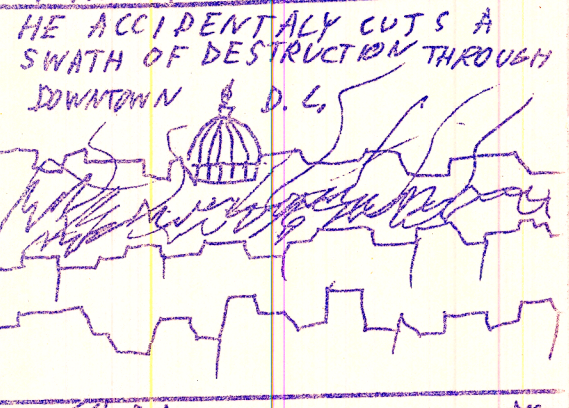 HE ACCIDENTALY CUTS A
SWATH OF DESTRUCTION THROUGH
DOWNTOWN D.C.